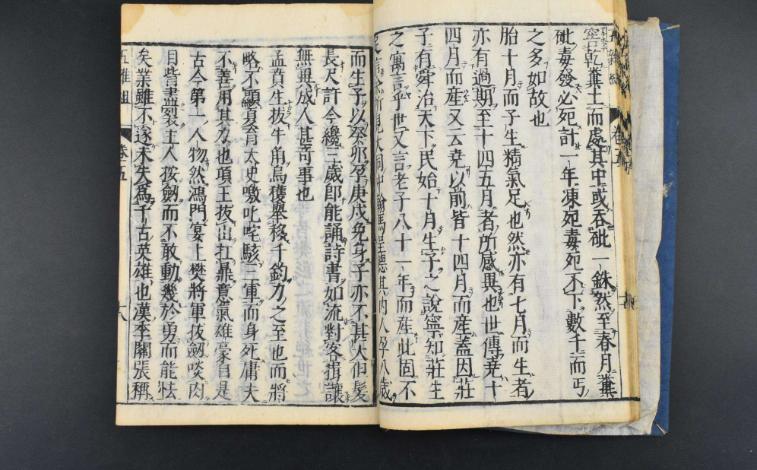 窖乾糞土而處其中或吞砒一銖然至春月糞
砒毒發必死計一年凍死毒死不下數千而丐
之多如故也
胎十月而子生精氣足也然亦有七月而生者
亦有過期至十四五月者所感異也世傳堯十
四月而産又云堯以前皆十四月而産蓋因莊
子有舜治天下民始十月生子之說寧知莊生
之寓言乎世又言老子八十一年而産此固不
所見人同中翰馬呈德其內人孕八歲
而生子以癸卯孕庚戌免身子亦不甚大但髮
長尺許今纔三歲卽能誦詩書如流對客揖讓
無異成人甚可事也
孟賁生拔牛角烏獲舉移千鈞力之至也而將
略不顯夏育太史噭叱咤駭三軍而身死庸夫
不善用其力也項王拔山扛鼎意氣雄豪自是
古今第一人物然鴻門宴上樊將軍拔劍啖肉
目眥盡裂主人按劍而不敢動幾於勇而能怯
矣業雖不遂未失爲千古英雄也漢季關張稱
五雜組 卷五 八